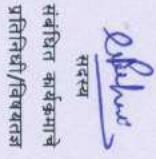 सदस्य
संबंधित कार्यक्रमाचे
प्रतिनिधी/विषयतज्ञ